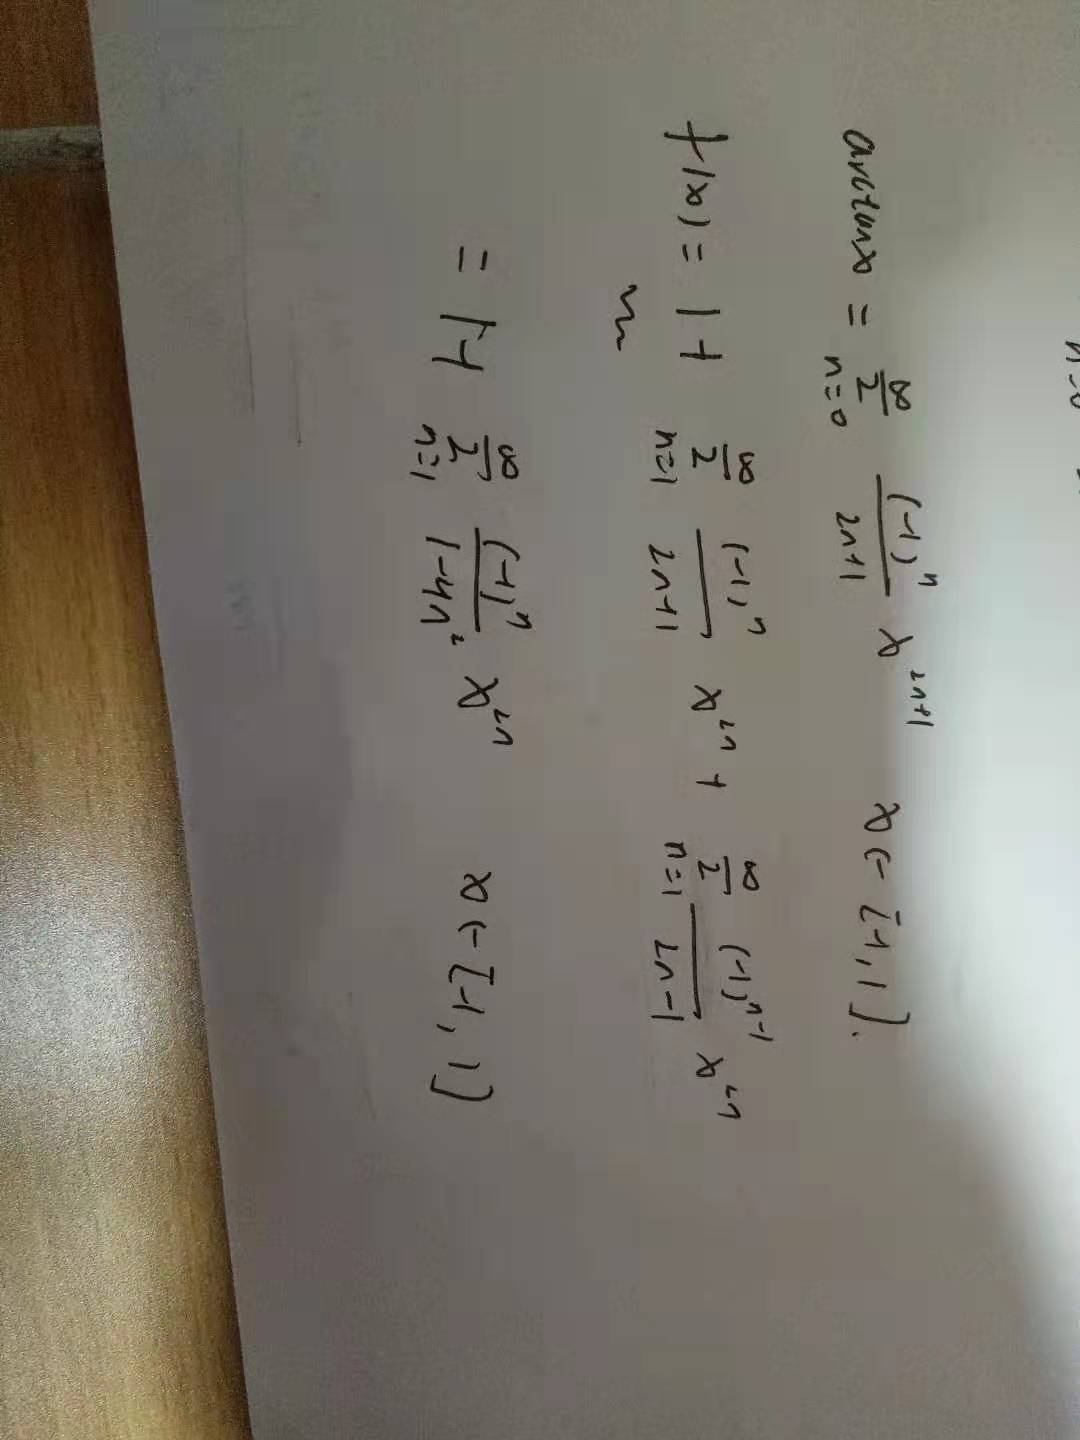 arctanx = ∞∑n=0 (-1)^n/2n+1 x^2n+1 x∈[-1,1].
f(x) = 1+ ∞∑n=1 (-1)^n/2n+1 x^2n + ∞∑n=1 (-1)^n-1/2n-1 x^2n
= 1+ ∞∑n=1 (-1)^n/1-4n² x^2n x∈[-1,1]